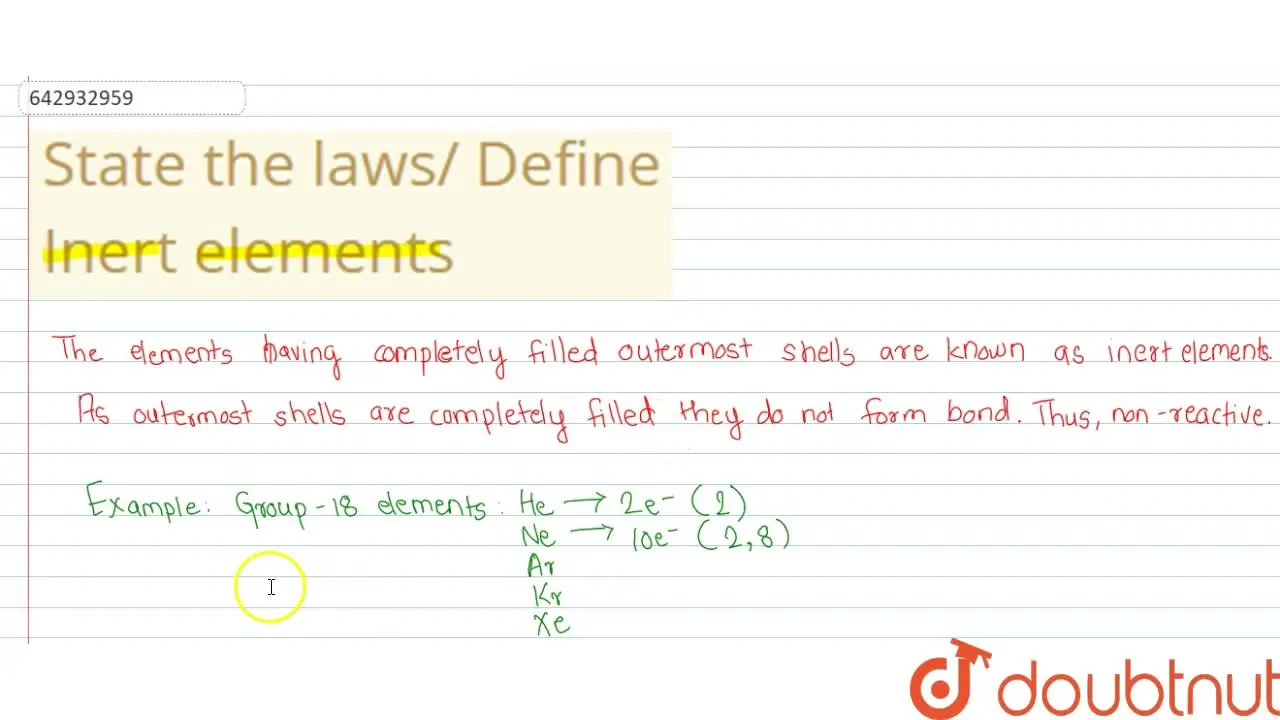 642932959
State the laws/ Define
Inert elements
The elements having completely filled outermost shells are known as inert elements.
As outermost shells are completely filled they do not form bond. Thus, non-reactive.
Example: Group-18 elements: He → 2e⁻ (2)
Ne → 10e⁻ (2,8)
Ar
Kr
Xe
doubtnut